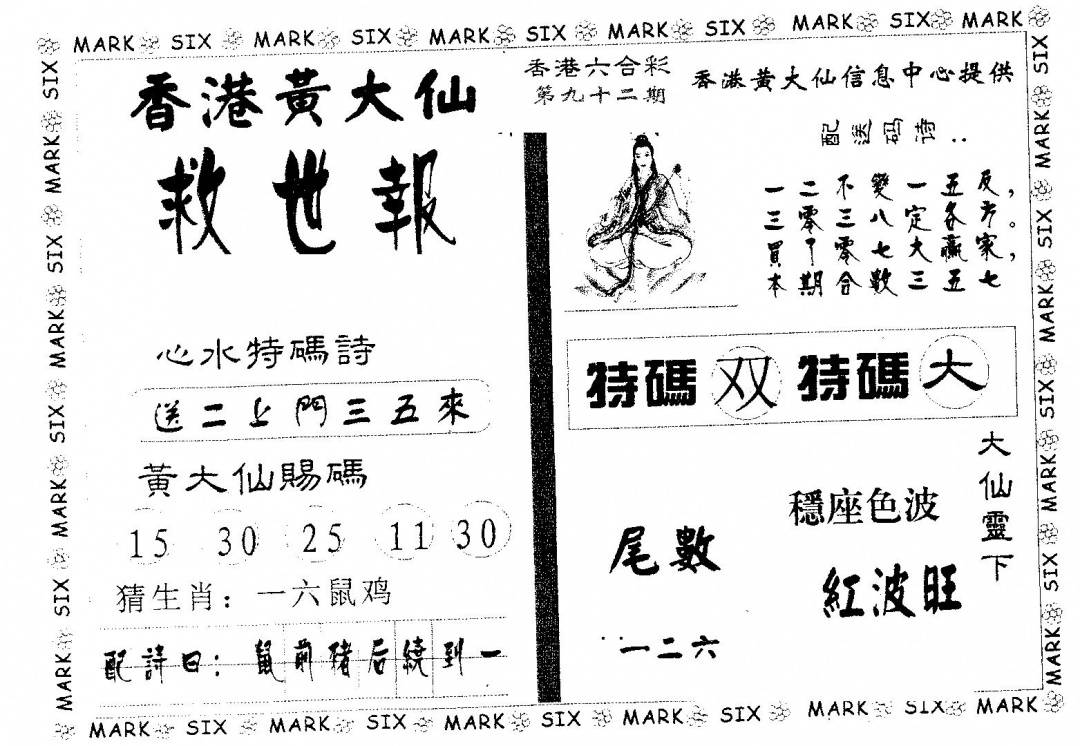 MARK SIX MARK SIX MARK SIX MARK SIX MARK SIX MARK
香港黃大仙
救世報
心水特碼詩
送二上門三五來
黃大仙賜碼
15 30 25 11 30
猜生肖：一六鼠鸡
配詩曰：鼠前豬后繞到一
香港六合彩
第九十二期
香港黄大仙信息中心提供
配送码诗：
一二不變一五反，
三零三八定各方。
買丁零七大贏家，
本期合數三五七
特碼双 特碼大
大仙靈下
穩座色波
紅波旺
尾數
一二六
MARK SIX MARK SIX MARK SIX MARK SIX MARK SIX MARK
SIX MARK SIX MARK SIX MARK SIX MARK
SIX MARK SIX MARK SIX MARK SIX MARK